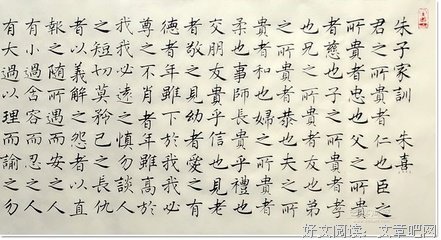 朱子家訓 朱熹
君之所貴者仁也臣之
所貴者忠也父之所貴
者慈也子之所貴者孝
也兄之所貴者友也弟
之所貴者恭也夫之所
貴者和也婦之所貴者
柔也事師長貴乎禮也
交朋友貴乎信也見老
者敬之見幼者愛之有
德者年雖下於我我必
尊之不肖者年雖高於
我我必遠之慎勿談人
之短切莫矜己之長仇
者以義解之怨者以直
報之隨所遇而安之人
有小過含容而忍之人
有大過以理而諭之勿
好文阅读：文章吧网